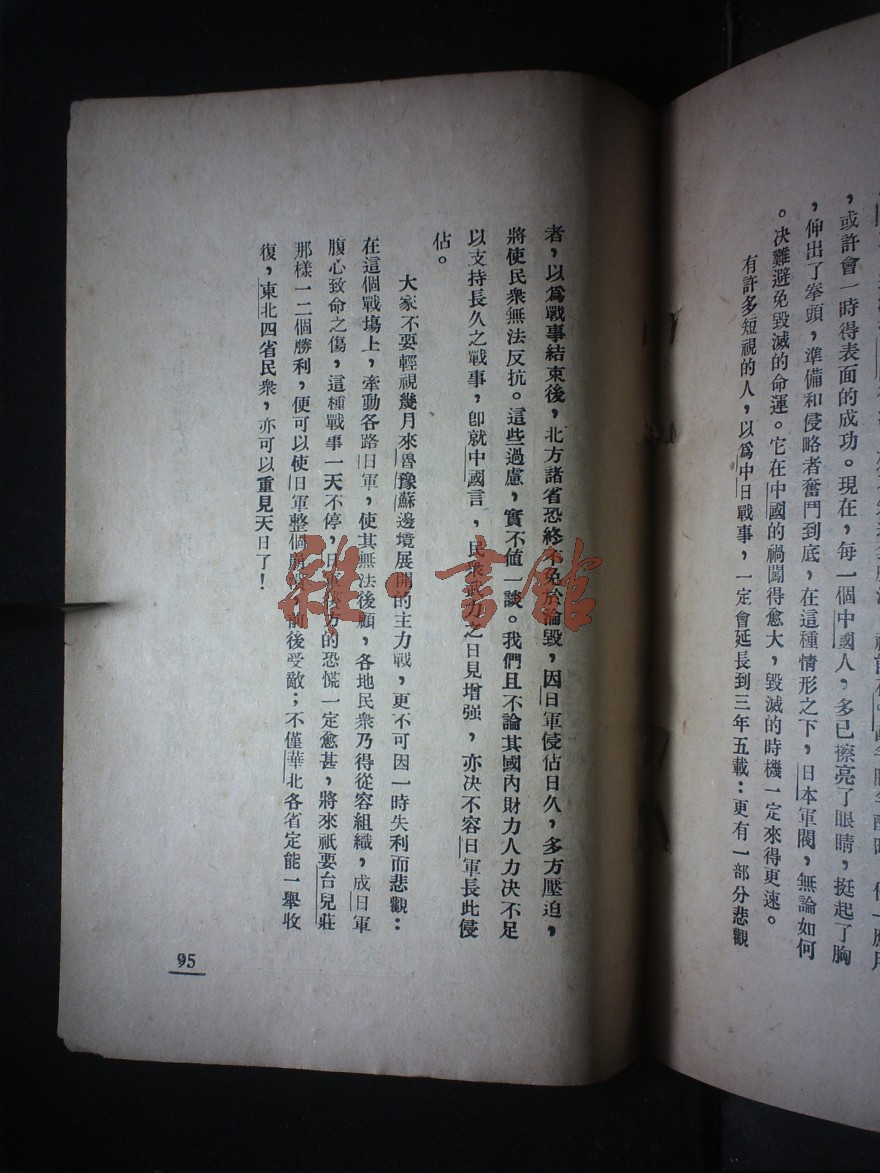 ，或許會一時得表面的成功。現在，每一個中國人，多已擦亮了眼睛，挺起了胸
，伸出了拳頭，準備和侵略者奮鬥到底，在這種情形之下，日本軍閥，無論如何
。决難避免毀滅的命運。它在中國的禍闖得愈大，毀滅的時機一定來得更速。
有許多短視的人，以爲中日戰事，一定會延長到三年五載：更有一部分悲觀
者，以爲戰事結束後，北方諸省恐終不免於淪毀，因日軍侵佔日久，多方壓迫，
將使民衆無法反抗。這些過慮，實不値一談。我們且不論其國內財力人力决不足
以支持長久之戰事，卽就中國言，民衆武力之日見增强，亦决不容日軍長此侵
佔。
大家不要輕視幾月來魯豫蘇邊境展開的主力戰，更不可因一時失利而悲觀：
在這個戰塲上，牽動各路日軍，使其無法後顧，各地民衆乃得從容組織，成日軍
腹心致命之傷，這種戰事一天不停，日軍後方的恐慌一定愈甚，將來祇要台兒莊
那樣一二個勝利，便可以使日軍整個前後受敵；不僅華北各省定能一舉收
復，東北四省民衆，亦可以重見天日了！
95
雜·書館